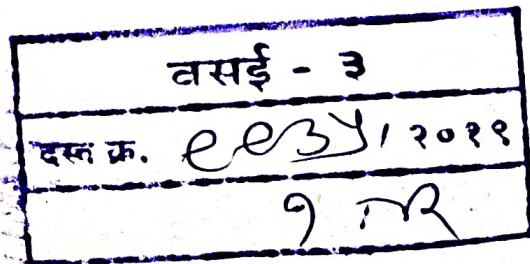 वसई - ३
दस्त क्र. ९९३५/२०१९
१